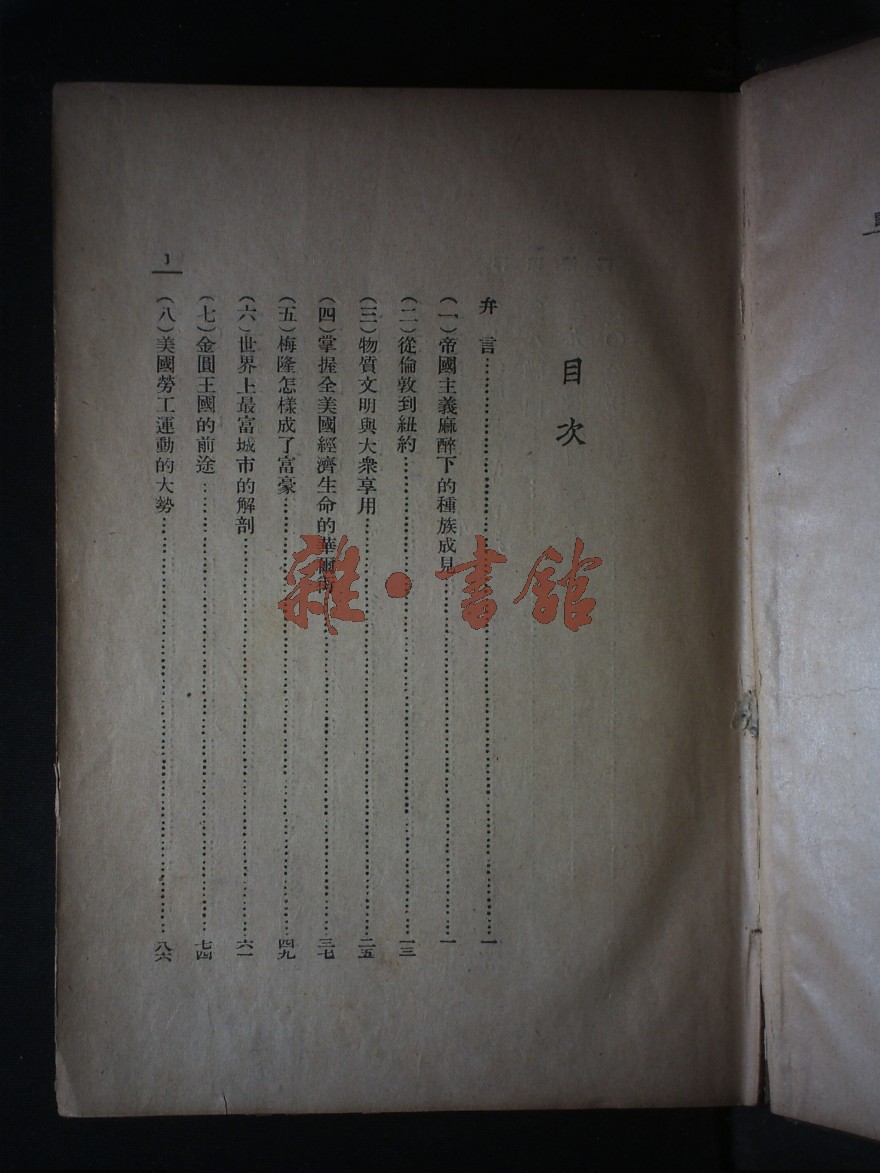 目次
弁言……一
(一)帝國主義麻醉下的種族成見……一
(二)從倫敦到紐約……一三
(三)物質文明與大衆享用……二五
(四)掌握全美國經濟生命的華爾街……三七
(五)梅隆怎樣成了富豪……四九
(六)世界上最富城市的解剖……六一
(七)金圓王國的前途……七四
(八)美國勞工運動的大勢……八六
1
雜·書館